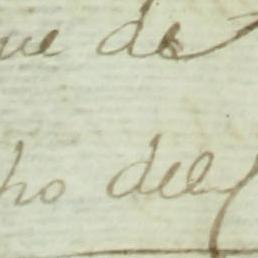 que de
ho del